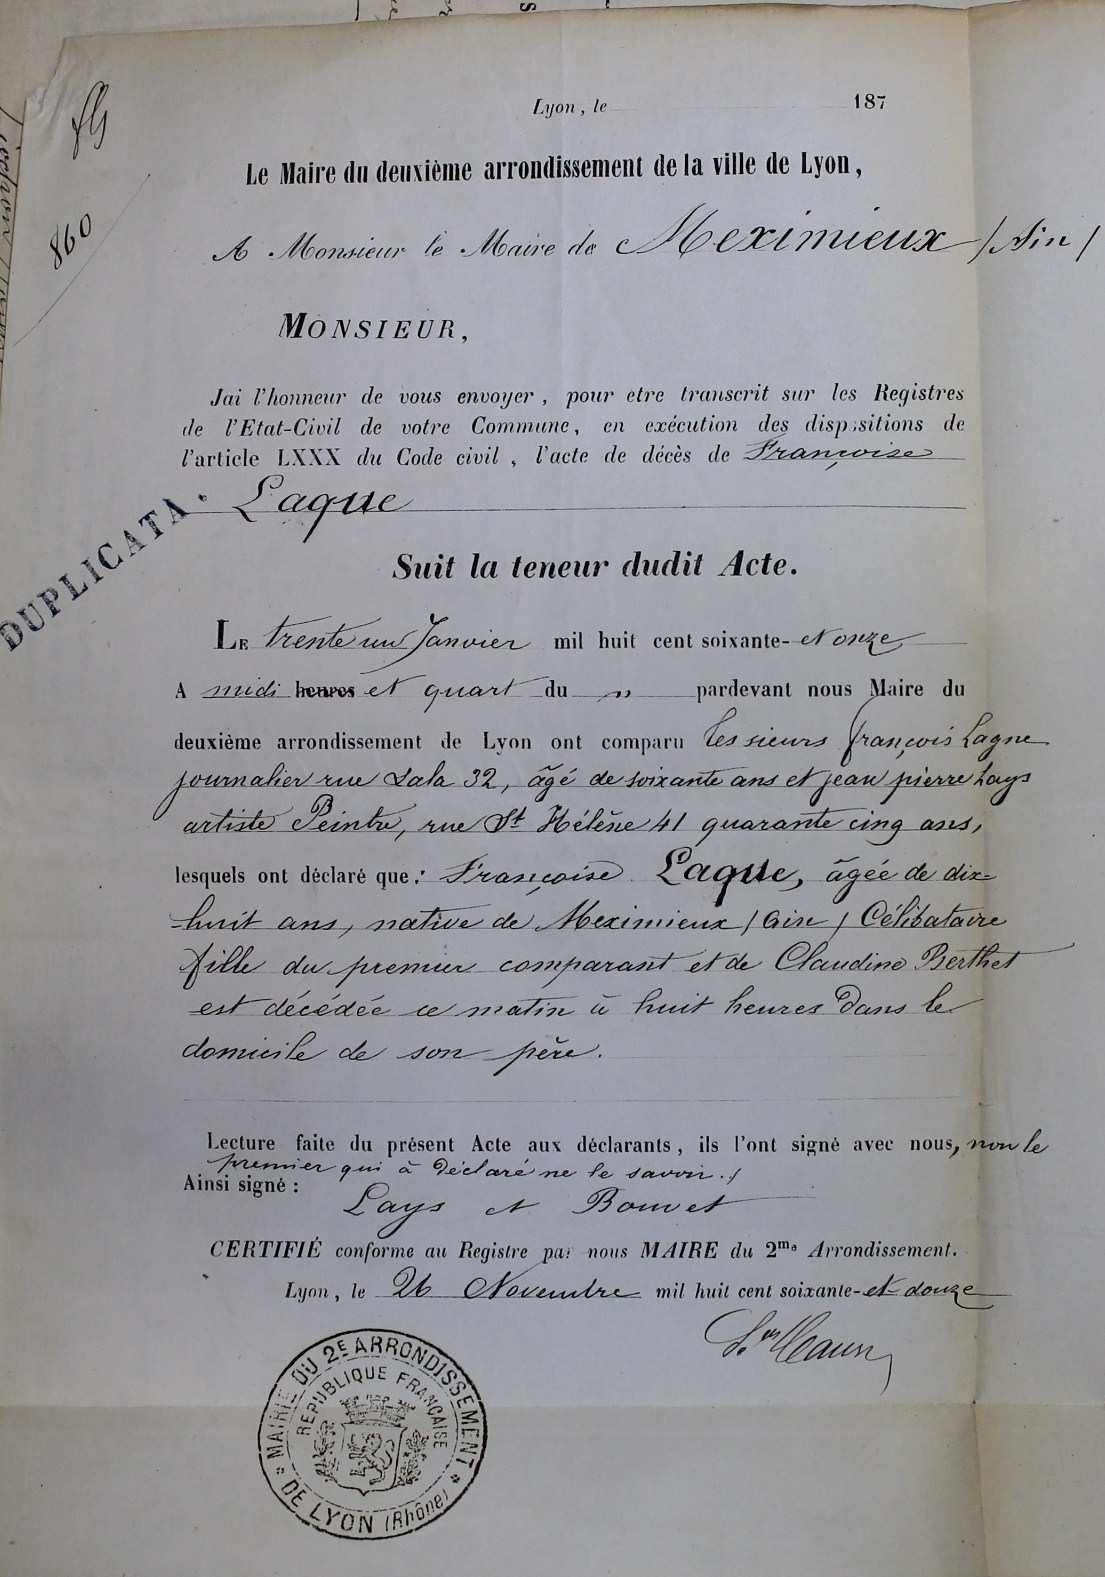 Lyon, le 187
Le Maire du deuxième arrondissement de la ville de Lyon,
860
A Monsieur le Maire de Meximieux (Ain)
MONSIEUR,
Jai l'honneur de vous envoyer, pour etre transcrit sur les Registres
de l'Etat-Civil de votre Commune, en exécution des dispositions de
l'article LXXX du Code civil, l'acte de décès de Françoise
Laque
DUPLICATA.
Suit la teneur dudit Acte.
LE trente un Janvier mil huit cent soixante- et onze
A midi heures et quart du " pardevant nous Maire du
deuxième arrondissement de Lyon ont comparu les sieurs françois Lagne
journalier rue Sala 32, âgé de soixante ans et jean pierre Lays
artiste Peintre, rue St Hélène 41 quarante cinq ans,
lesquels ont déclaré que: Françoise Laque, âgée de dix-
huit ans, native de Meximieux (Ain) Célibataire
fille du premier comparant et de Claudine Berthet
est décédée ce matin à huit heures Dans le
domicile de son père.
Lecture faite du présent Acte aux déclarants, ils l'ont signé avec nous, non le
premier qui à déclaré ne le savoir./
Ainsi signé:
Lays et Bouvet
CERTIFIÉ conforme au Registre par nous MAIRE du 2me Arrondissement.
Lyon, le 26 Novembre mil huit cent soixante- et douze
MAIRIE DU 2E ARRONDISSEMENT
DE LYON (Rhône)
REPUBLIQUE FRANÇAISE